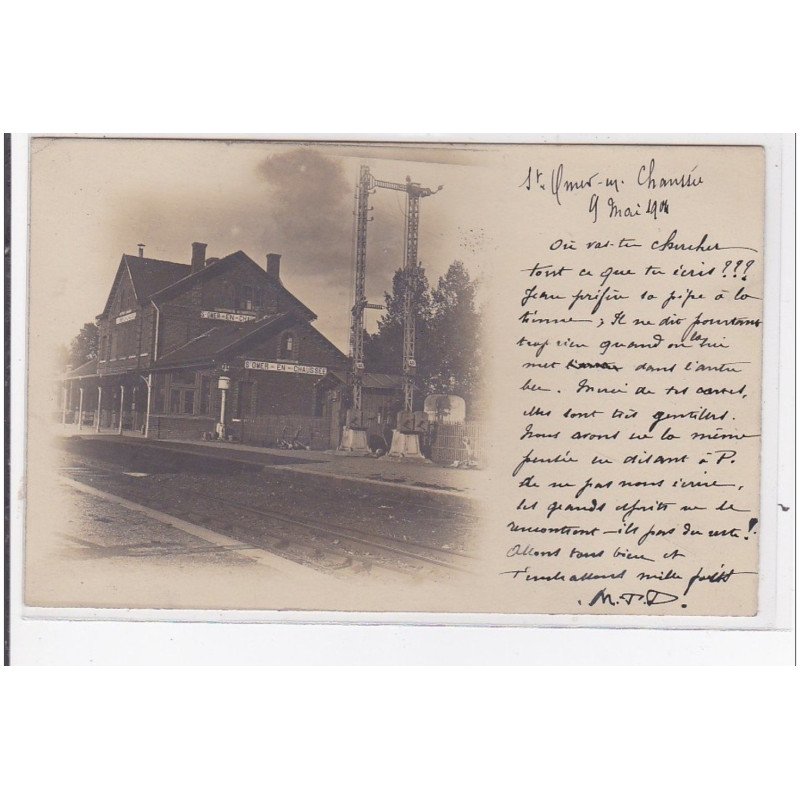 St. OMER-EN-CHAUSS
St. OMER-EN-CHAUSSÉE
St. Omer-en-Chaussée
9 Mai 190
Où vas-tu chercher
tout ce que tu écris ???
Jean préfère sa pipe à la
tienne ; Il ne dit pourtant
trop rien quand on la lui
met dans l'autre
bec. Merci de tes cartes,
elles sont très gentilles.
Nous avons eu la même
pensée en disant à P.
de ne pas nous écrire,
les grands esprits ne se
rencontrent-ils pas du reste !
Allons tous bien et
t'embrassons mille fois
M.P.D.